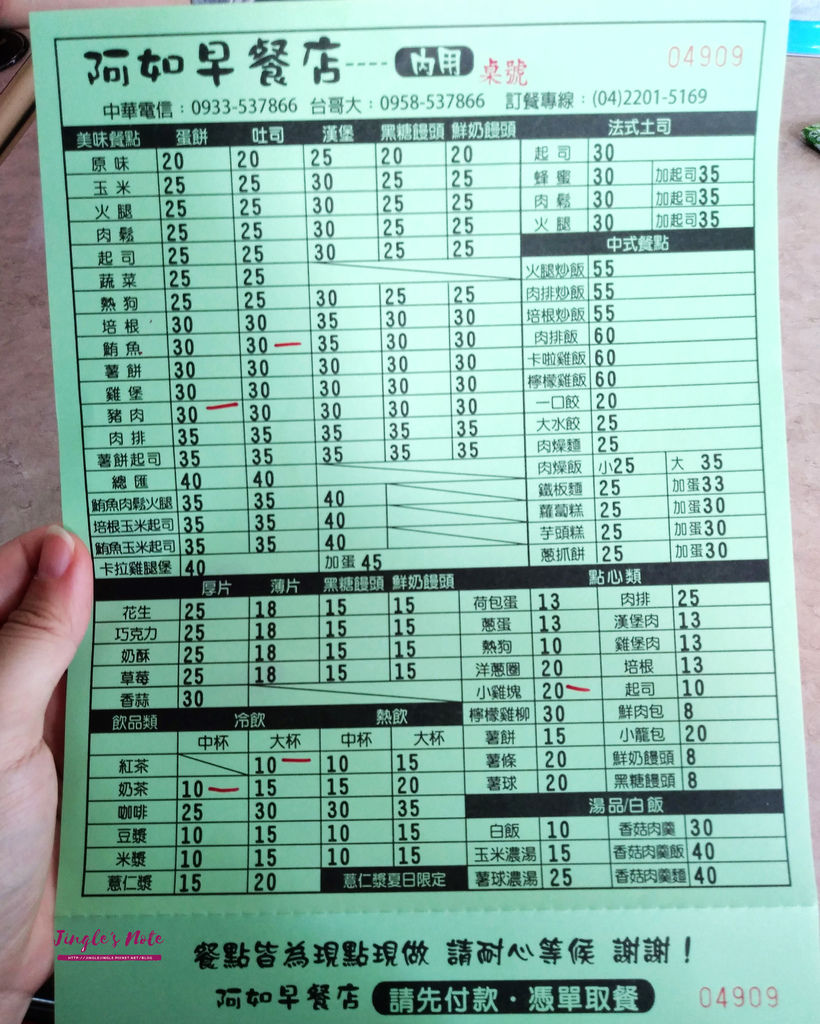 阿如早餐店---- 內用 桌號 04909
中華電信：0933-537866 台哥大：0958-537866 訂餐專線：(04)2201-5169
美味餐點 蛋餅 吐司 漢堡 黑糖饅頭 鮮奶饅頭
原味 20 20 25 20 20
玉米 25 25 30 25 25
火腿 25 25 30 25 25
肉鬆 25 25 30 25 25
起司 25 25 30 25 25
蔬菜 25 25
熱狗 25 25 30 25 25
培根 30 30 35 30 30
鮪魚 30 30 35 30 30
薯餅 30 30 30 30 30
雞堡 30 30 30 30 30
豬肉 30 30 30 30 30
肉排 35 35 35 35 35
薯餅起司 35 35 35 35 35
總匯 40 40
鮪魚肉鬆火腿 35 35 40
培根玉米起司 35 35 40
鮪魚玉米起司 35 35 40
卡拉雞腿堡 40 加蛋 45
法式土司
起司 30
蜂蜜 30 加起司35
肉鬆 30 加起司35
火腿 30 加起司35
中式餐點
火腿炒飯 55
肉排炒飯 55
培根炒飯 55
肉排飯 60
卡啦雞飯 60
檸檬雞飯 60
一口餃 20
大水餃 25
肉燥麵 25
肉燥飯 小25 大 35
鐵板麵 25 加蛋33
蘿蔔糕 25 加蛋30
芋頭糕 25 加蛋30
蔥抓餅 25 加蛋30
厚片 薄片 黑糖饅頭 鮮奶饅頭
花生 25 18 15 15
巧克力 25 18 15 15
奶酥 25 18 15 15
草莓 25 18 15 15
香蒜 30
飲品類 冷飲 熱飲
中杯 大杯 中杯 大杯
紅茶 10 10 15
奶茶 10 15 15 20
咖啡 25 30 30 35
豆漿 10 15 10 15
米漿 10 15 10 15
薏仁漿 15 20 薏仁漿夏日限定
點心類
荷包蛋 13 肉排 25
蔥蛋 13 漢堡肉 13
熱狗 10 雞堡肉 13
洋蔥圈 20 培根 13
小雞塊 20 起司 10
檸檬雞柳 30 鮮肉包 8
薯餅 15 小籠包 20
薯條 20 鮮奶饅頭 8
薯球 20 黑糖饅頭 8
湯品/白飯
白飯 10 香菇肉羹 30
玉米濃湯 15 香菇肉羹飯 40
薯球濃湯 25 香菇肉羹麵 40
Jingle's Note
HTTP://JINGLEJINGLE.PIXNET.NET/BLOG
餐點皆為現點現做 請耐心等候 謝謝！
阿如早餐店 請先付款・憑單取餐 04909